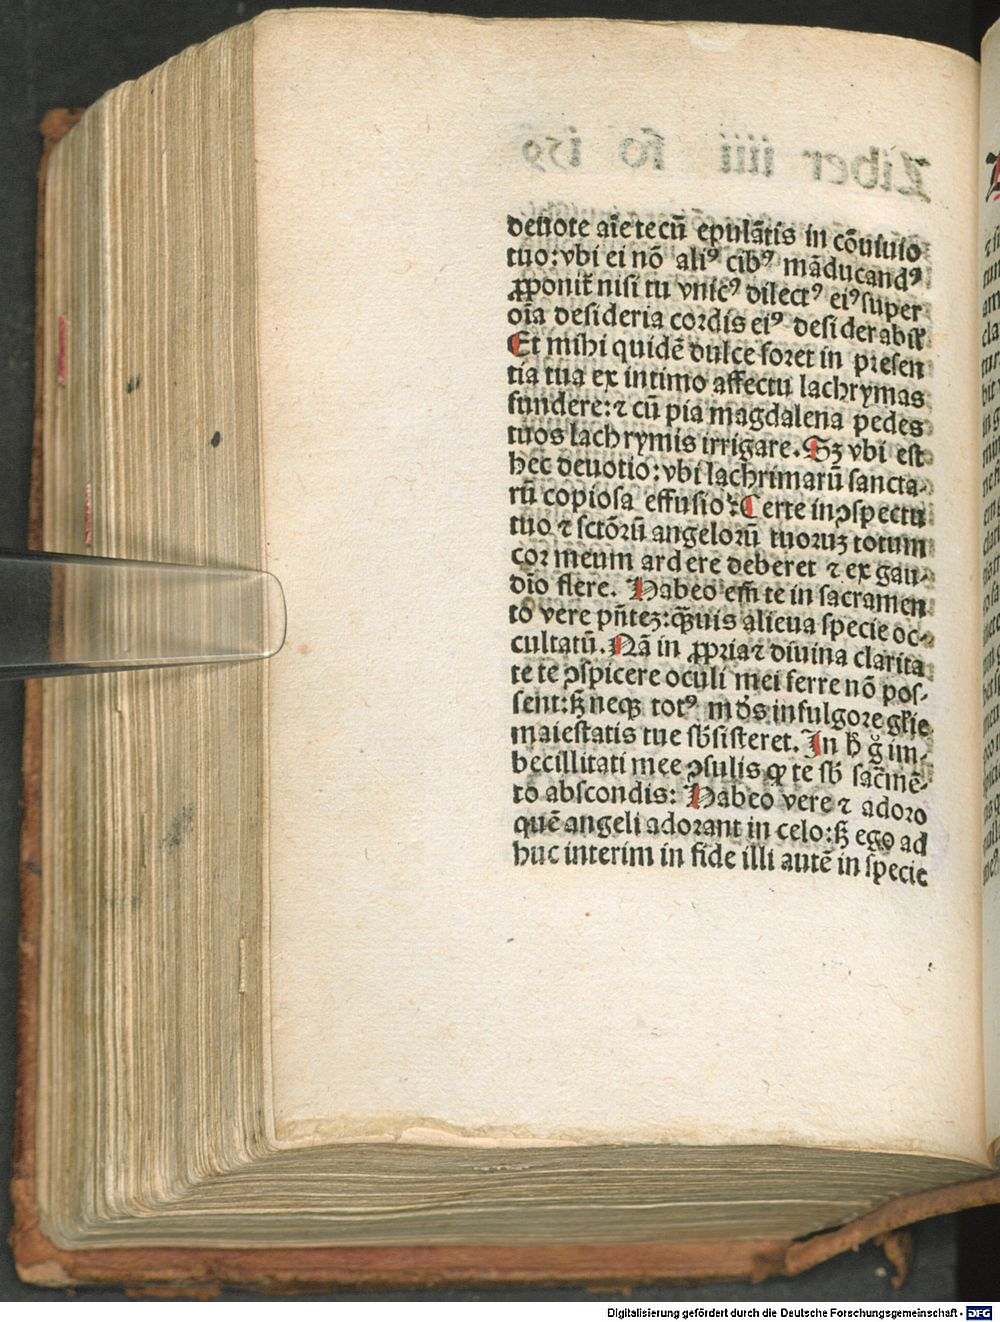 Liber iiii fo 159
deuote aīe tecū epulātis in cōuiuio
tuo: vbi ei nō aliꝰ cibꝰ māducandꝰ
ꝓponit᷑ nisi tu vnicꝰ dilectꝰ eiꝰ super
oīa desideria cordis eiꝰ desiderabil᷑
Et mihi quidē dulce foret in presen
tia tua ex intimo affectu lachrymas
fundere: ⁊ cū pia magdalena pedes
tuos lachrymis irrigare. Sꝫ vbi est
hec deuotio: vbi lachrimarū sancta-
rū copiosa effusio? Certe in ↄspectu
tuo ⁊ sctōrū angelorū tuoruꝫ totum
cor meum ardere deberet ⁊ ex gau-
dio flere. Habeo em̄ te in sacramen
to vere pn̄teꝫ: q̄ꝫuis aliena specie oc-
cultatū. Nā in ꝓpria ⁊ diuina clarita
te te ↄspicere oculi mei ferre nō pos-
sent: sꝫ neqꝫ totꝰ mūdꝰ in fulgore gl̄ie
maiestatis tue sb̄sisteret. In h̄ gͦ im-
becillitati mee ↄsulis ꝙ te sb̄ sac̄mē-
to abscondis: Habeo vere ⁊ adoro
quē angeli adorant in celo: sꝫ ego ad
huc interim in fide illi autē in specie
Digitalisierung gefördert durch die Deutsche Forschungsgemeinschaft - DFG